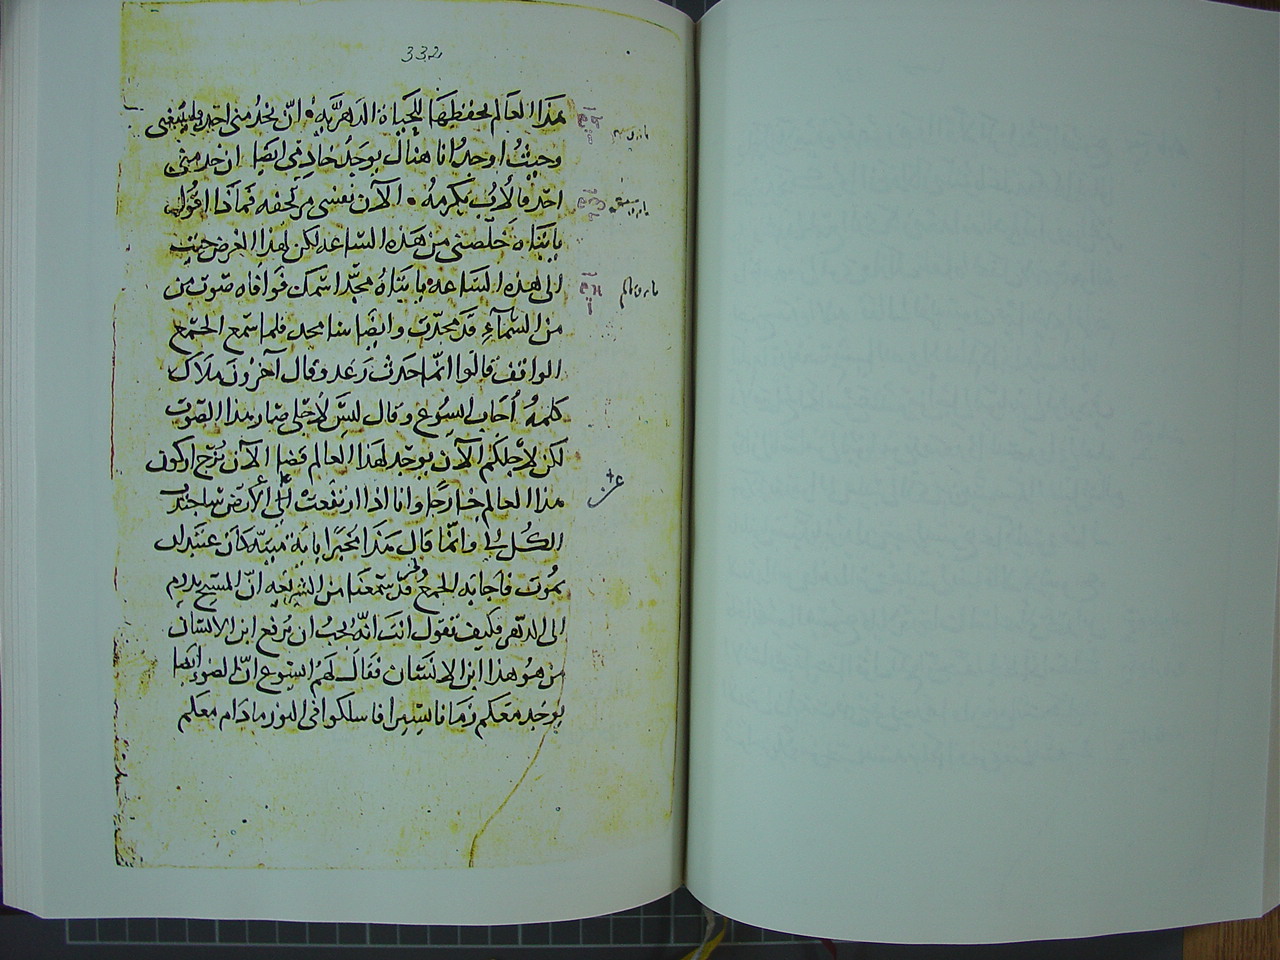 332
بهذا العالم يحفظها للحياة الدهرية . ان يخدمني احد فليتبعني
وحيث اوجد انا هناك يوجد خادمي ايضا ان خدمني
احد فالاب يكرمه . الآن نفسي مرتجفه فماذا اقول
يا ابتاه خلصني من هذه الساعه لكن لهذا الغرض جيت
الى هذه الساعه يا ابتاه مجد اسمك فوافاه صوت من
من السمآء قد مجدت وايضا سامجد فلما سمع الجمع
الواقف قالوا انما حدث رعد وقال آخرون ملاك
كلمه أجاب ايسوع وقال ليس لاجلي صار هذا الصوت
لكن لاجلكم الآن يوجد لهذا العالم قضا الآن يزج اركون
هذا العالم خارجا وانا اذا ارتفعت الى الارض ساجتذب
الكل الي وانما قال هذا مخبرا باية ميتة كان عتيدا ان
يموت فاجابه الجمع قد سمعنا من الشريعه ان المسيح يدوم
الى الدهر فكيف تقول انت انه يجب ان يرفع ابن الانسان
من هو هذا ابن الانسان فقال لهم ايسوع ان الضوء ايضا
يوجد معكم زمانا يسيرا فاسلكوا في النور ما دام معكم